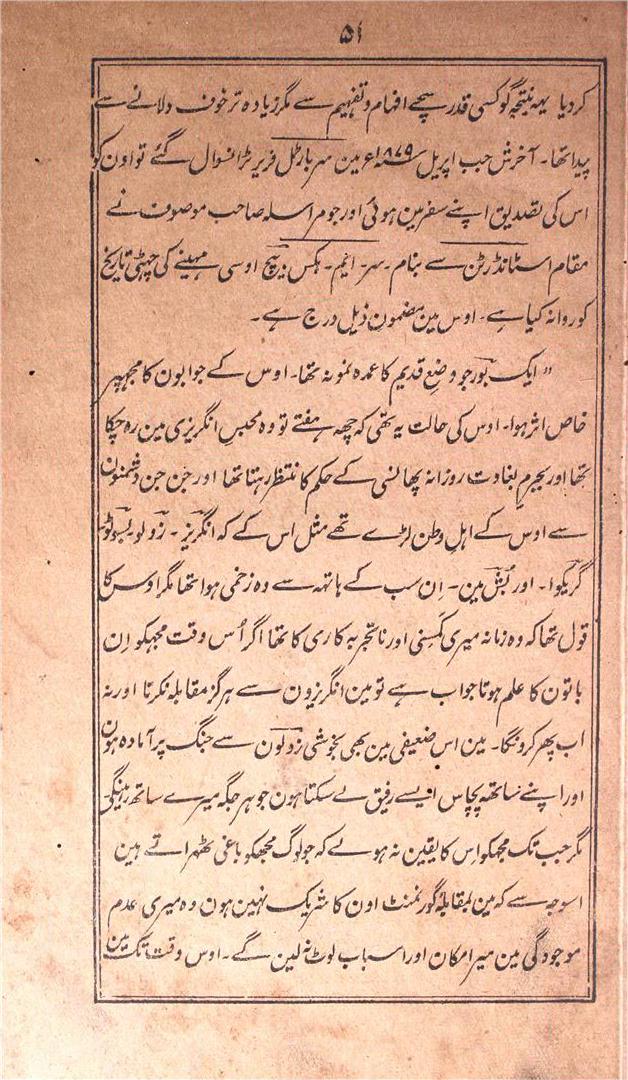 ۵۱
کردیا یہہ نتیجہ گو کسی قدر سچے افہام و تفہیم سے مگر زیادہ تر خوف دلانے سے
پیدا تھا۔ آخرش جب اپریل ۱۸۷۹ء مین سر بارٹل فریر ٹرانسوال گئے تو اون کو
اس کی تصدیق اپنے سفر مین ہوئی اور جو مراسلہ صاحب موصوف نے
مقام اسٹانڈرٹن سے بنام۔ سر۔ ایم۔ ہکس بیچ اوسی مہینے کی چھٹی تاریخ
کو روانہ کیا ہے۔ اوس مین مضمون ذیل درج ہے۔
" ایک بور جو وضع قدیم کا عمدہ نمونہ تھا۔ اوس کے جوابون کا مجھپر
خاص اثر ہوا۔ اوس کی حالت یہ تھی کہ چھہ ہفتے تو وہ محبس انگریزی مین رہ چکا
تھا اور بجرم بغاوت روزانہ پھانسی کے حکم کا منتظر رہتا تھا اور جن جن دشمنون
سے اوس کے اہل وطن لڑے تھے مثل اس کے کہ انگریز۔ زولو بسوٹو
گریکوا۔ اور بش مین۔ اِن سب کے ہاتھہ سے وہ زخمی ہوا تھا مگر اوس کا
قول تھا کہ وہ زمانہ میری کمسنی اور ناتجربہ کاری کا تھا اگر اُس وقت مجہکو اِن
باتون کا علم ہوتا جو اب ہے تو مین انگریزون سے ہرگز مقابلہ نکرتا اور نہ
اب پھر کرونگا۔ مین اس ضعیفی مین بھی بخوشی زولون سے جنگ پر آمادہ ہون
اور اپنے ساتھہ پچاس ایسے رفیق لے سکتا ہون جو ہر جگہ میرے ساتھ رہینگے
مگر جب تک مجہکو اس کا یقین نہ ہولے کہ جو لوگ مجھکو باغی ٹھہراتے ہین
اسوجہ سے کہ مین بمقابلۂ گورنمنٹ اون کا شریک نہین ہون وہ میری عدم
موجودگی مین میرا مکان اور اسباب لوٹ نہ لین گے۔ اوس وقت تک مین